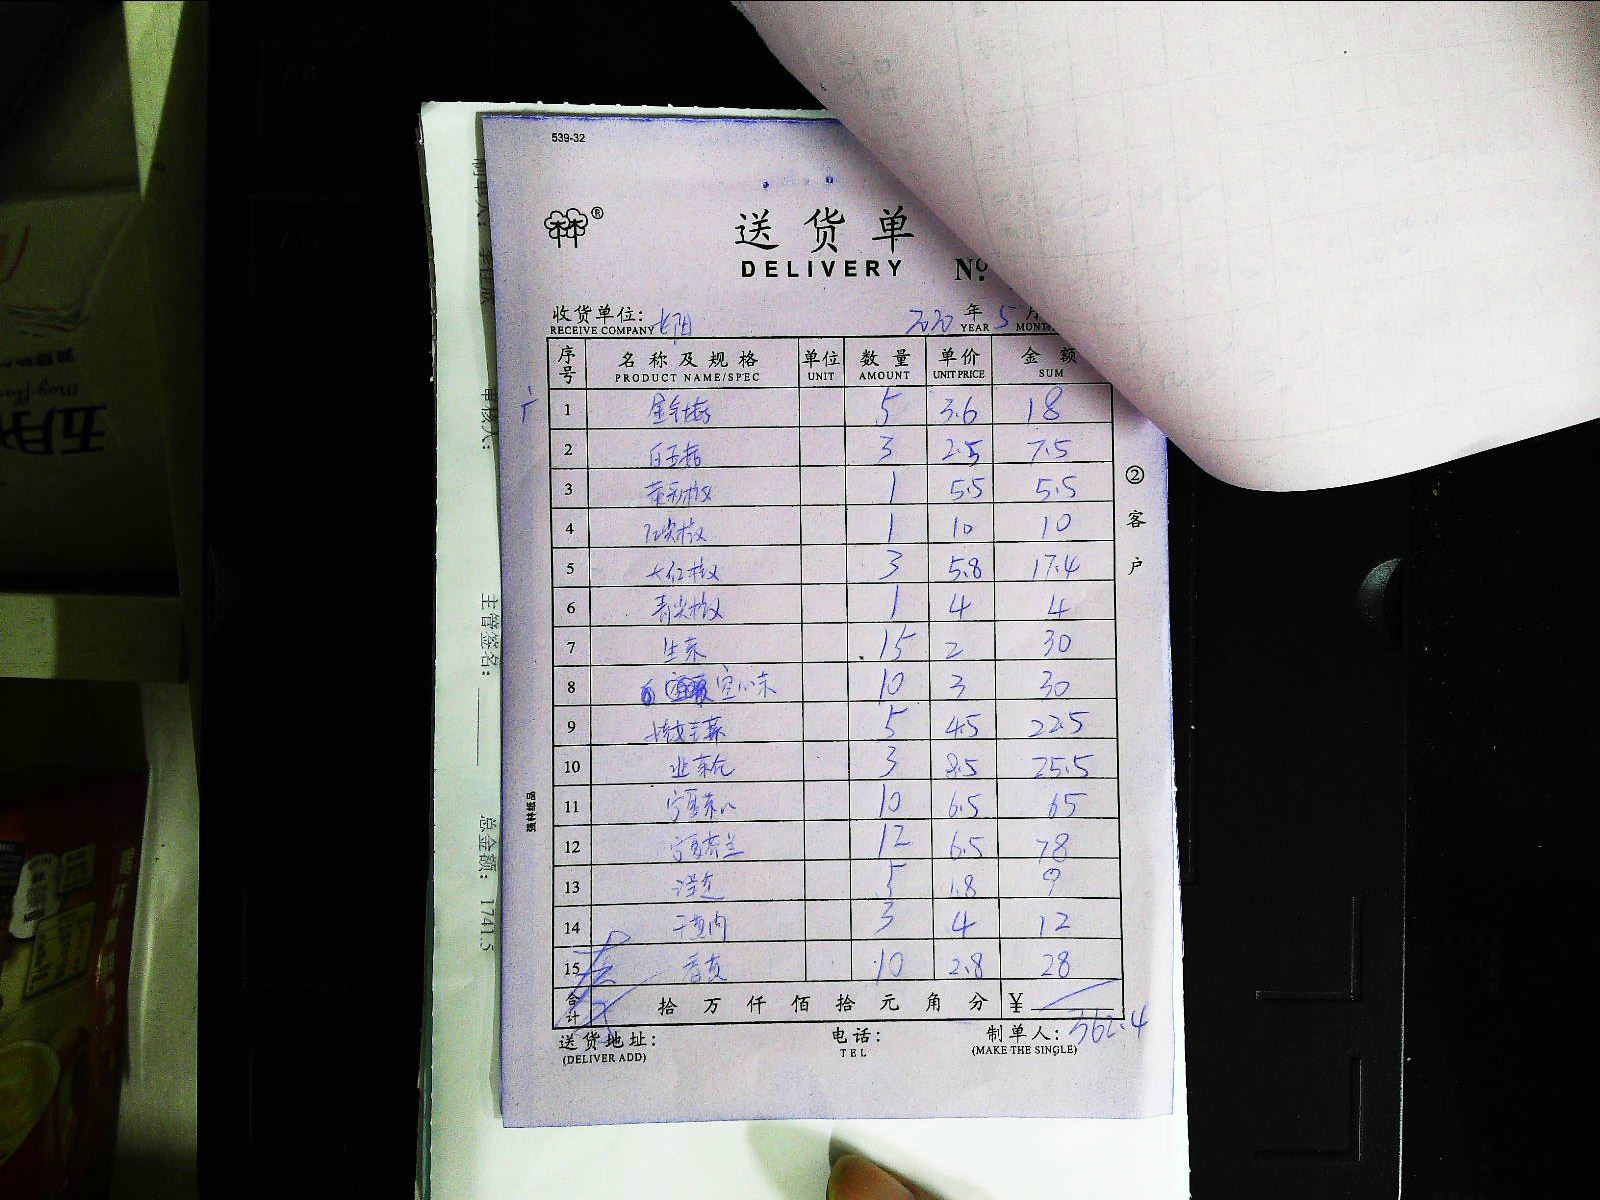 539-32
®
送货单
DELIVERY No.
收货单位:
RECEIVE COMPANY
2020 年 5 月
YEAR MONTH
序号 名称及规格 单位 数量 单价 金额
PRODUCT NAME/SPEC UNIT AMOUNT UNIT PRICE SUM
1 金针菇 5 3.6 18
2 白玉菇 3 2.5 7.5
3 1 5.5 5.5
4 红尖椒 1 10 10
5 大红椒 3 5.8 17.4
6 青尖椒 1 4 4
7 生菜 15 2 30
8 空心菜 10 3 30
9 5 4.5 22.5
10 韭菜花 3 8.5 25.5
11 宁夏菜心 10 6.5 65
12 宁夏芥兰 12 6.5 78
13 5 1.8 9
14 3 4 12
15 10 2.8 28
合计 拾 万 仟 佰 拾 元 角 分 ¥
362.4
送货地址: 电话: 制单人:
(DELIVER ADD) TEL (MAKE THE SINGLE)
② 客户
强林纸品
制单人:
审核人:
主管签名:
总金额: 1741.5